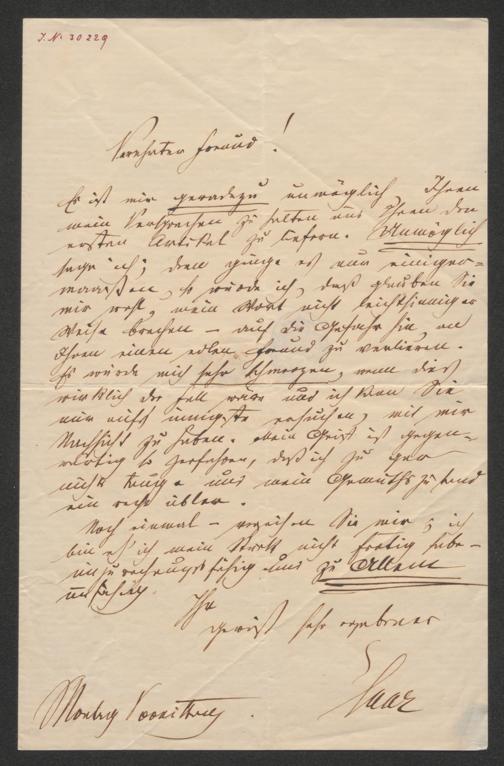 J. N. 30229
Verehrter Freund!
Es ist mir geradezu unmöglich, Ihnen
mein Versprechen zu halten und Ihnen den
ersten Artikel zu liefern. Unmöglich
sage ich; denn ginge es nur einiger=
maassen, so würde ich, daß glauben Sie
mir wohl, mein Wort nicht leichtsinniger
Weise brechen – auf die Gefahr hin, an
Ihnen einen edlen Freund zu verlieren.
Es würde mich sehr schmerzen, wenn dies
wirklich der Fall wäre und ich kann Sie
nur aufs innigste ersuchen, mit mir
Nachsicht zu haben. Mein Geist ist gegen=
wärtig so zerfahren, daß ich zu gar
nichts tauge und mein Gemüthszustand
ein recht übler.
Noch einmal – verzeihen Sie mir; ich
bin eh' ich mein Werk nicht fertig habe –
unzurechnungsfähig und zu Allem
unfähig.
Ihr
gewiß sehr ergebener
Saar
Montag Vormittag.